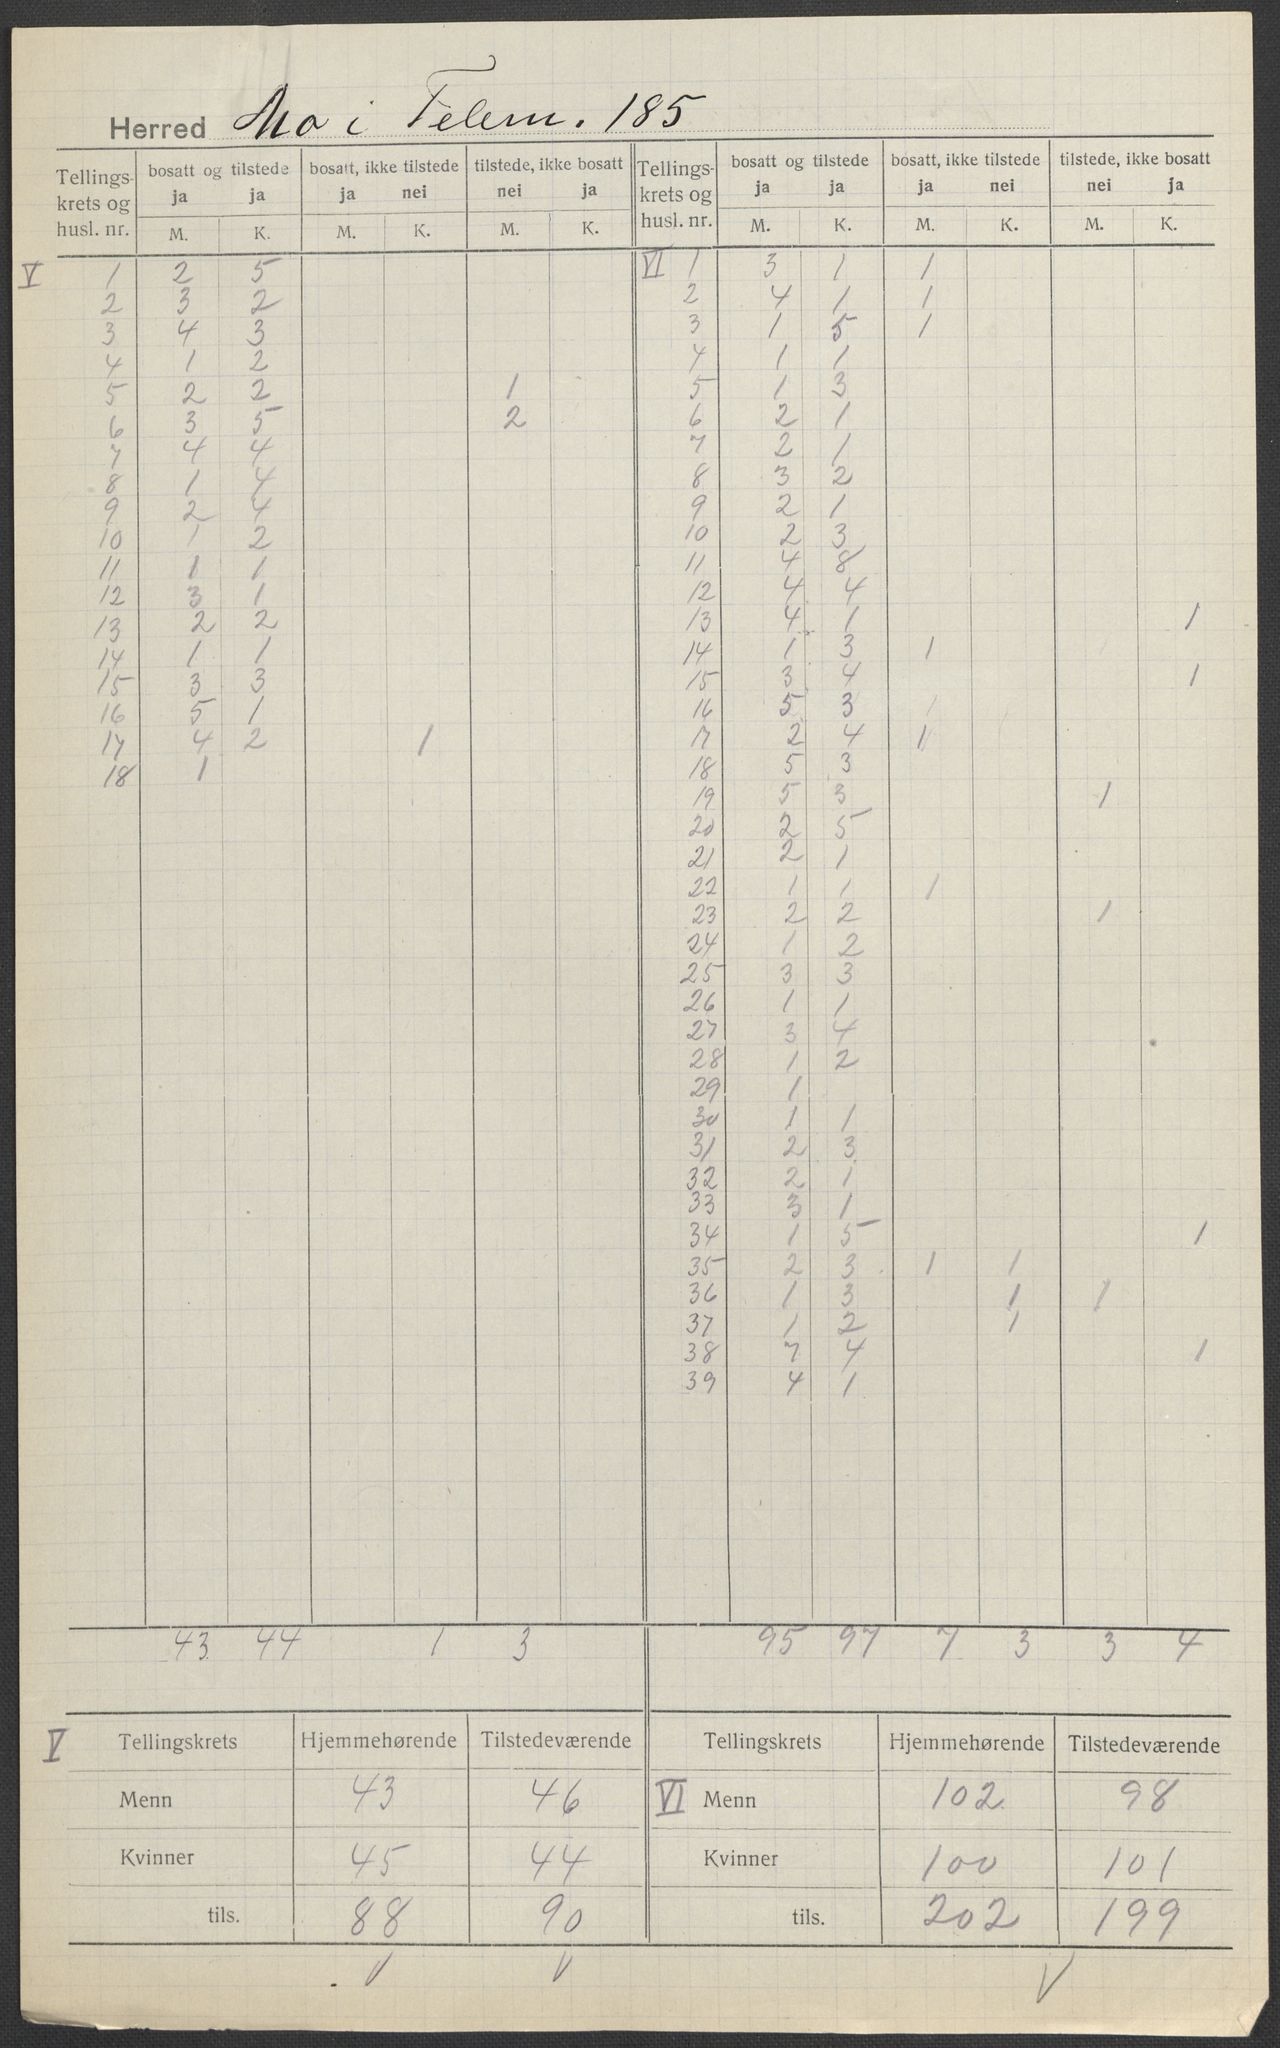 Herred Mo i Telem. 185
Tellings- krets og husl. nr. | bosatt og tilstede ja ja | bosatt, ikke tilstede ja nei | tilstede, ikke bosatt nei ja | Tellings- krets og husl. nr. | bosatt og tilstede ja ja | bosatt, ikke tilstede ja nei | tilstede, ikke bosatt nei ja
M. K. M. K. M. K. M. K. M. K. M. K.
V 1 2 5 VI 1 3 1 1
2 3 2 2 4 1 1
3 4 3 3 1 5 1
4 1 2 4 1 1
5 2 2 1 5 1 3
6 3 5 2 6 2 1
7 4 4 7 2 1
8 1 4 8 3 2
9 2 4 9 2 1
10 1 2 10 2 3
11 1 1 11 4 8
12 3 1 12 4 4
13 2 2 13 4 1 1
14 1 1 14 1 3 1
15 3 3 15 3 4 1
16 5 1 16 5 3
17 4 2 1 17 2 4 1
18 1 18 5 3
19 5 3 1
20 2 5
21 2 1
22 1 1 1
23 2 2 1
24 1 2
25 3 3
26 1 1
27 3 4
28 1 2
29 1
30 1 1
31 2 3
32 2 1
33 3 1
34 1 5 1
35 2 3 1 1
36 1 3 1 1
37 1 2 1
38 7 4 1
39 4 1
43 44 1 3 95 97 7 3 3 4
V Tellingskrets Hjemmehørende Tilstedeværende Tellingskrets Hjemmehørende Tilstedeværende
Menn 43 46 VI Menn 102 98
Kvinner 45 44 Kvinner 100 101
tils. 88 90 tils. 202 199